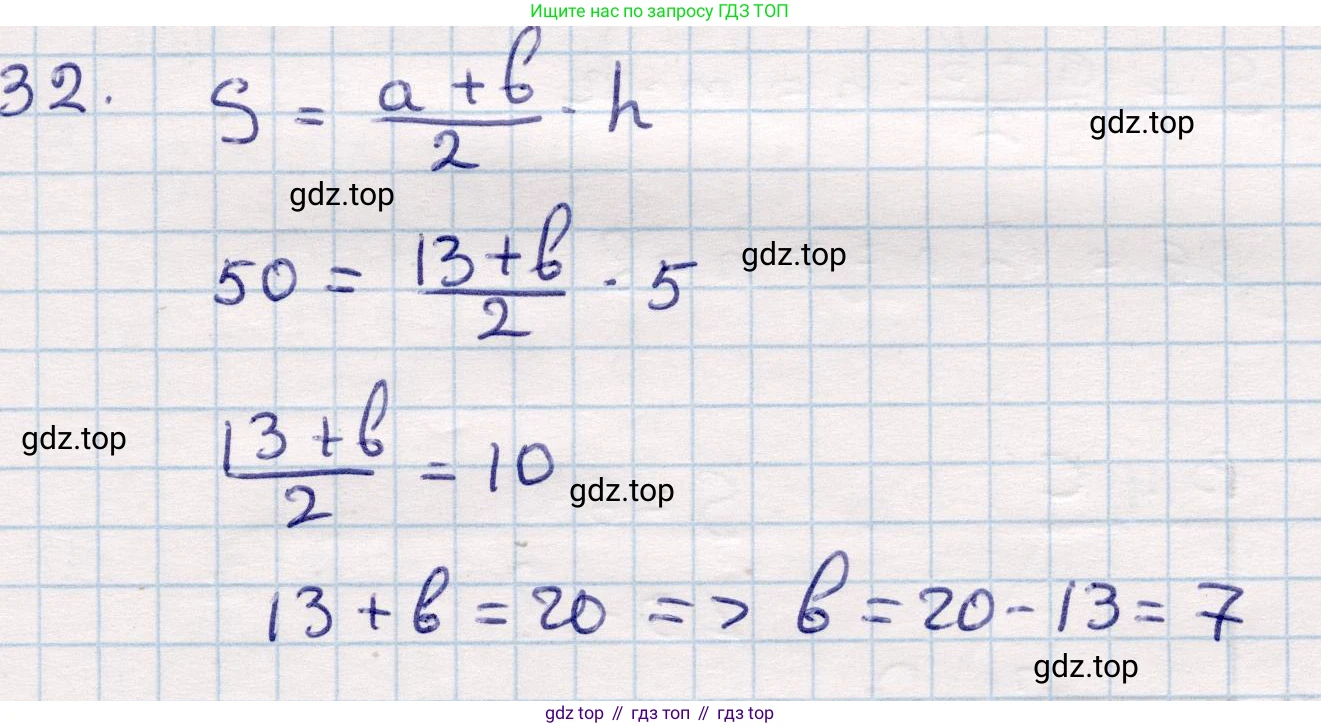 Ищите нас по запросу ГДЗ ТОП
32. S = (a + b)/2 · h
gdz.top
gdz.top
50 = (13 + b)/2 · 5
gdz.top
(13 + b)/2 = 10
gdz.top
gdz.top
13 + b = 20 => b = 20 - 13 = 7
gdz.top
gdz top // гдз топ // gdz top